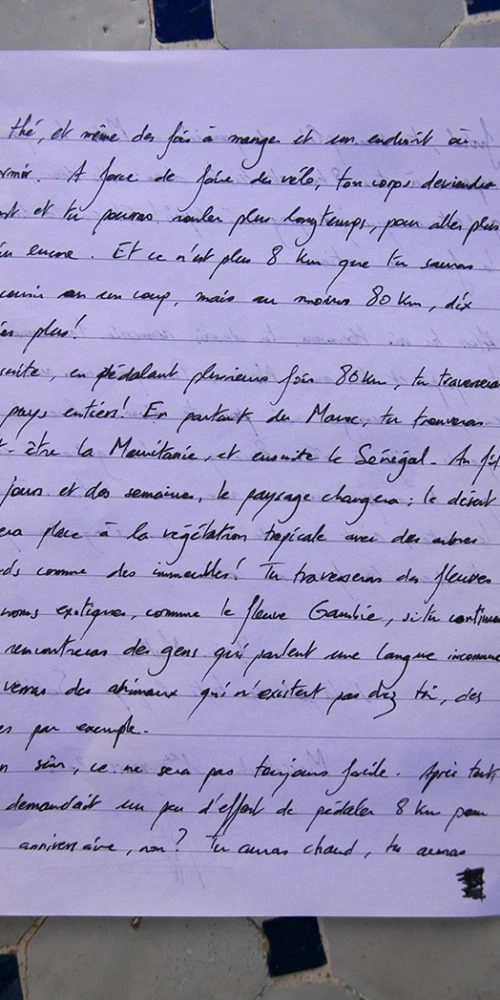 thé, et même des fois à manger et un endroit où
rmir. A force de faire du vélo, ton corps deviendra
et tu pourras rouler plus longtemps, pour aller plus
encore. Et ce n'est plus 8 km que tu sauras
en un coup, mais au moins 80 km, dix
plus!
suite, en pédalant plusieurs fois 80km, tu traverseras
pays entiers! En partant du Maroc, tu trouveras
t-être la Mauritanie, et ensuite le Sénégal. Au fil
jours et des semaines, le paysage changera; le désert
era place à la végétation tropicale avec des arbres
ds comme des immeubles! Tu traverseras des fleuves
noms exotiques, comme le fleuve Gambie, si tu continues
rencontreras des gens qui parlent une langue inconnue
verras des animaux qui n'existent pas chez toi, des
es par exemple.
n sûr, ce ne sera pas toujours facile. Après tout,
demandait un peu d'effort de pédaler 8 km pour
anniversaire, non? Tu auras chaud, tu auras